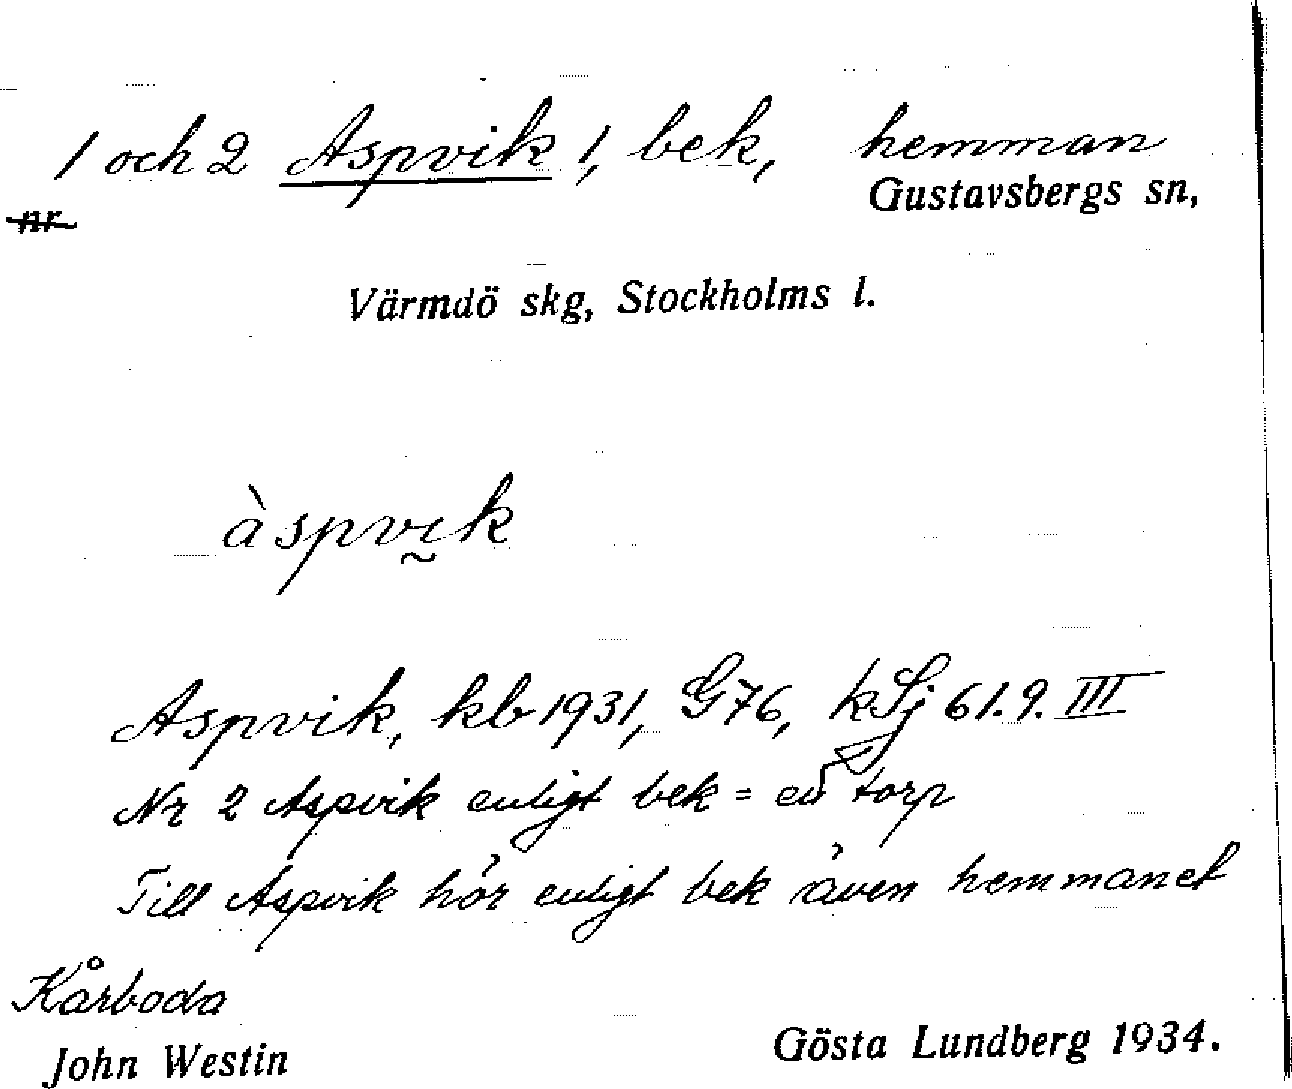 1 och 2 Aspvik 1, bek, hemman
nr
Gustavsbergs sn,
Värmdö skg, Stockholms l.
àspvik
Aspvik, kb 1931, G76, kSj 61.9.III
Nr 2 Aspvik enligt bek = ett torp
Till Aspvik hör enligt bek även hemmanet
Kårboda
John Westin Gösta Lundberg 1934.